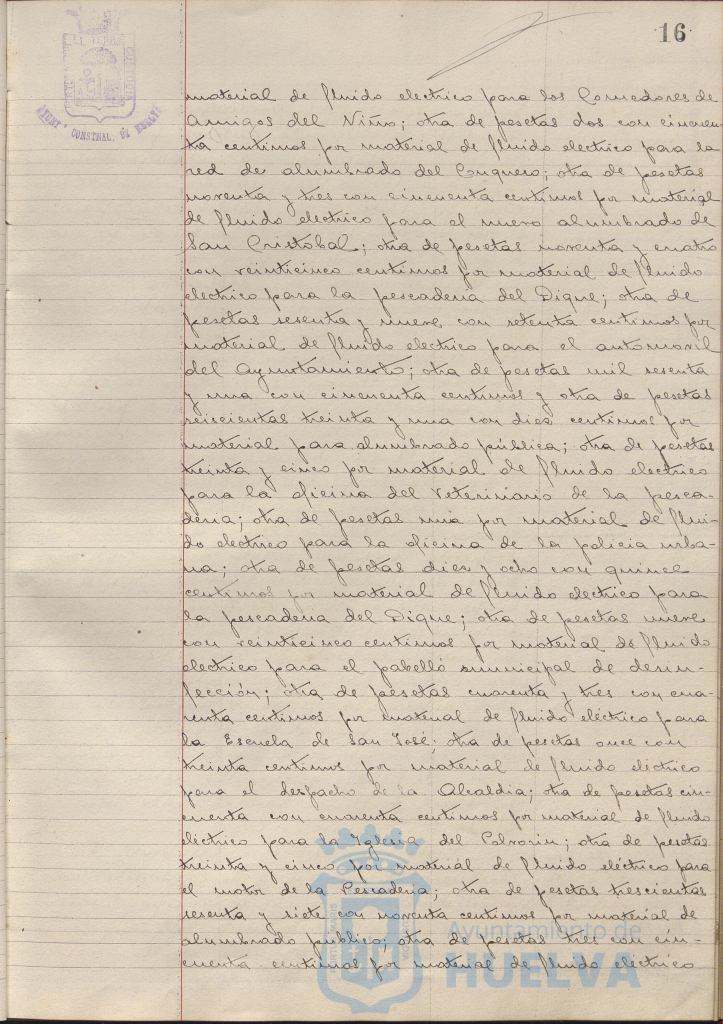 16
AYUNTº CONSTNAL. DE HUELVA
material de fluido electrico para los Comedores de
Amigos del Niño; otra de pesetas dos con cincuen-
ta centimos por material de fluido electrico para la
red de alumbrado del Conquero; otra de pesetas
noventa y tres con cincuenta centimos por material
de fluido electrico para el nuevo alumbrado de
San Cristobal; otra de pesetas noventa y cuatro
con veinticinco centimos por material de fluido
electrico para la pescaderia del Dique; otra de
pesetas sesenta y nueve con setenta centimos por
material de fluido electrico para el automovil
del Ayuntamiento; otra de pesetas mil sesenta
y una con cincuenta centimos y otra de pesetas
seiscientas treinta y una con diez centimos por
material para alumbrado pública; otra de pesetas
treinta y cinco por material de fluido electrico
para la oficina del Veterinario de la pesca-
deria; otra de pesetas una por material de flui-
do electrico para la oficina de la policia urba-
na; otra de pesetas diez y ocho con quince
centimos por material de fluido electrico para
la pescaderia del Dique; otra de pesetas nueve
con veinticinco centimos por material de fluido
electrico para el pabelló municipal de desin-
fección; otra de pesetas cuarenta y tres con cua-
renta centimos por material de fluido eléctrico para
la Escuela de San José; otra de pesetas once con
treinta centimos por material de fluido eléctrico
para el despacho de la Alcaldia; otra de pesetas cin-
cuenta con cuarenta centimos por material de fluido
eléctrico para la Iglesia del Polvorin; otra de pesetas
treinta y cinco por material de fluido eléctrico para
el motor de la Pescaderia; otra de pesetas trescientas
sesenta y siete con noventa centimos por material de
alumbrado público; otra de pesetas tres con cin-
cuenta centimos por material de fluido eléctrico
Ayuntamiento de
HUELVA